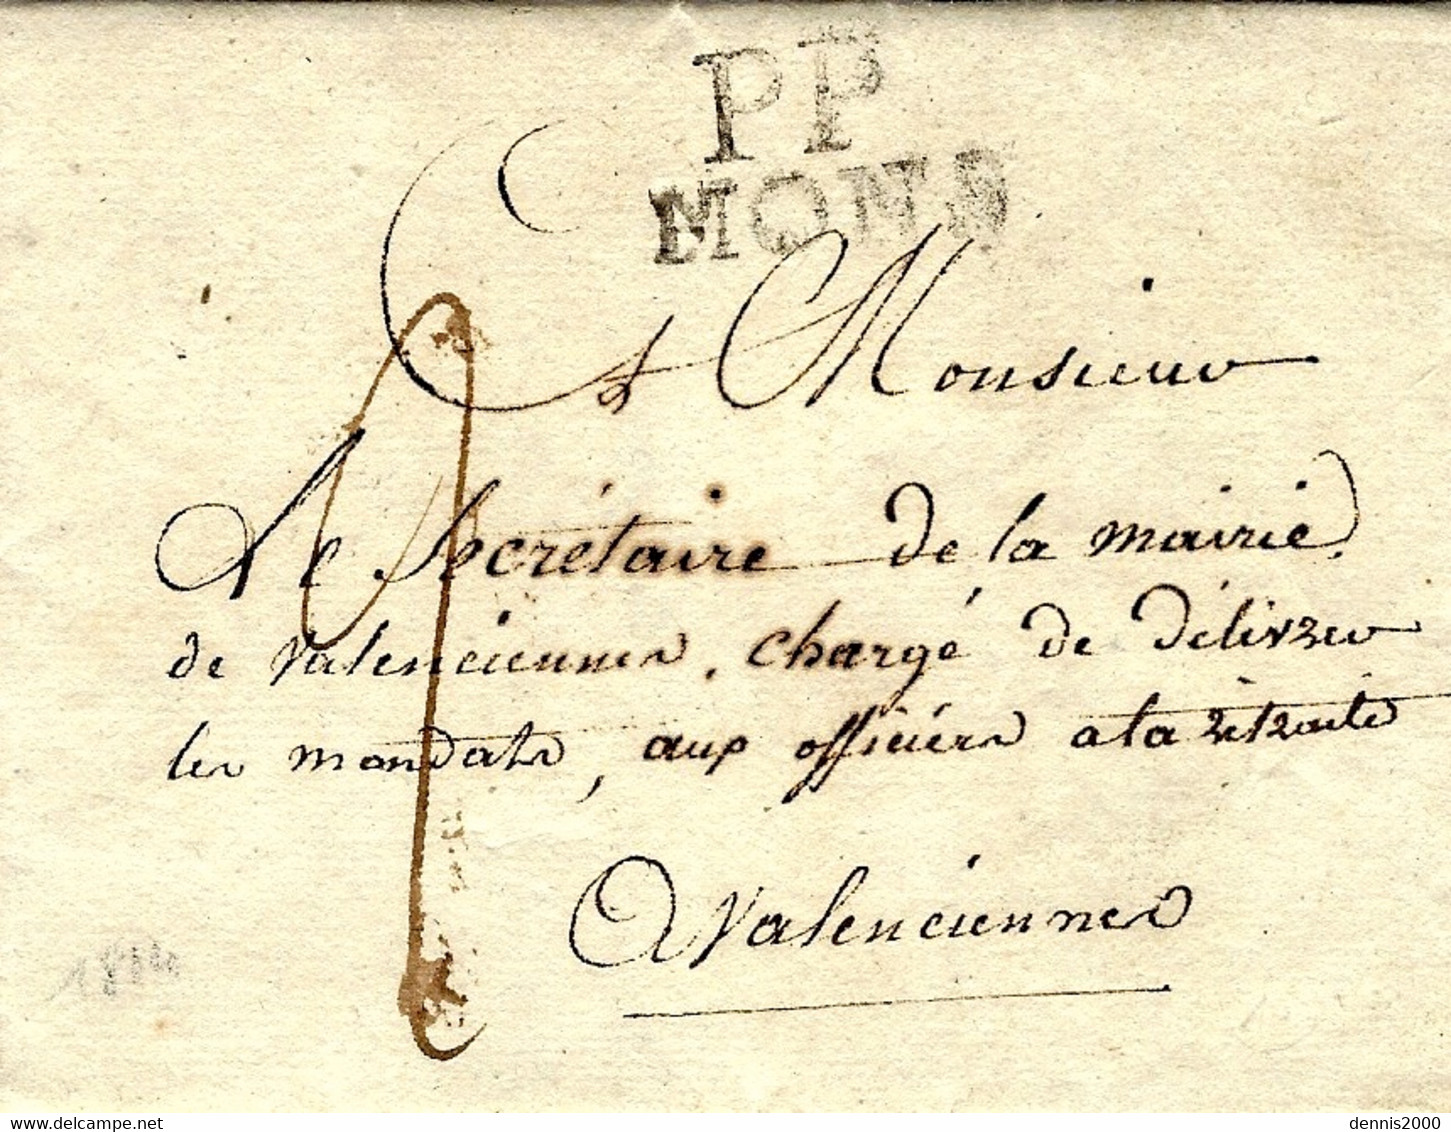 PP
MONS
A Monsieur
Le Secrétaire de la mairie
de valenciennes, chargé de délivrer
les mandats, aux officiérs a la retraite
A valenciennes
1814
delcampe.net
dennis2000